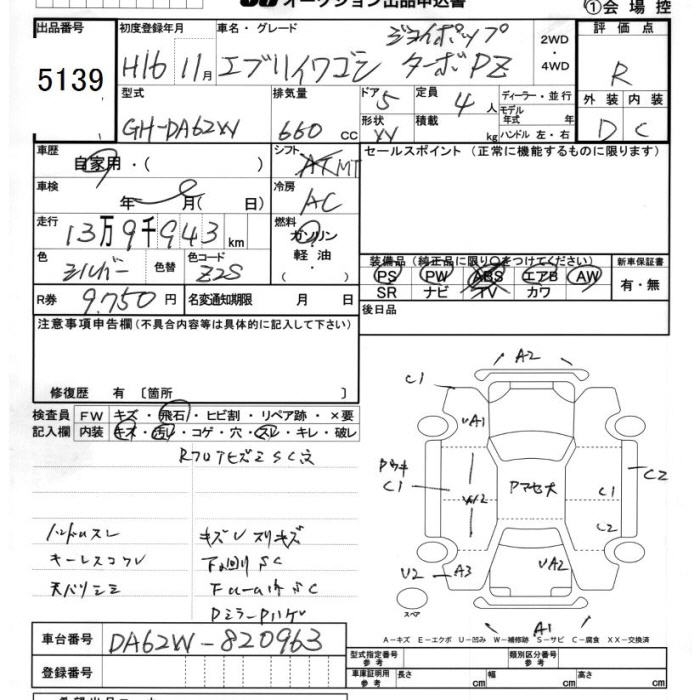 オークション出品申込書
①会場控
出品番号
5139
初度登録年月
H16 11月
車名・グレード
エブリイワゴン
ジョイポップ
ターボ PZ
2WD
・
4WD
評価点
R
外装 内装
D C
型式
GH-DA62W
排気量
660 cc
ドア 5
形状
定員 4人
積載 kg
ディーラー・並行
モデル
年式 年
ハンドル 左・右
車歴
自家用・( )
シフト
AT MT
セールスポイント (正常に機能するものに限ります)
車検
年 月( 日)
冷房
AC
走行
13万9千943 km
燃料
ガソリン
軽油
・
色
シルバー
色替
色コード
Z2S
装備品 (純正品に限り○をつけてください)
PS PW ABS エアB AW
SR ナビ TV カワ
新車保証書
有・無
R券 9,750円
名変通知期限 月 日
後日品
注意事項申告欄(不具合内容等は具体的に記入して下さい)
修復歴 有 〔箇所 〕
検査員
記入欄
FW キズ・飛石・ヒビ割・リペア跡・×要
内装 キズ・汚レ・コゲ・穴・スレ・キレ・破レ
ハンドルスレ
キズU スリキズ
キーレスコワレ
下廻りSC
天バリシミ
Dミラーハゲ
A2
C1
UA1
C1
W2
C2
C1
C2
U2
A3
UA2
A1
スペア
A-キズ E-エクボ U-凹み W-補修跡 S-サビ C-腐食 XX-交換済
車台番号 DA62W-820963
登録番号
型式指定番号
参考
類別区分番号
参考
車庫証明用
参考
長さ cm
幅 cm
高さ cm